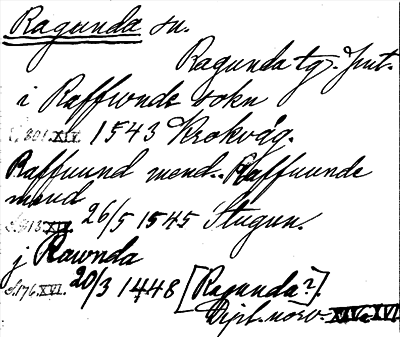 Ragunda sn.
Ragunda tg. Jmt.
i Raffwnde sokn
S. 301. XIV. 1543 Krokvåg.
Raffwund mend. Raffuunde
mend
S. 413. XIV. 26/5 1545 Stugun.
j Rawnda
S. 176. XVI. 20/3 1448 [Ragunda?].
Dipl. norv. XIV o XVI